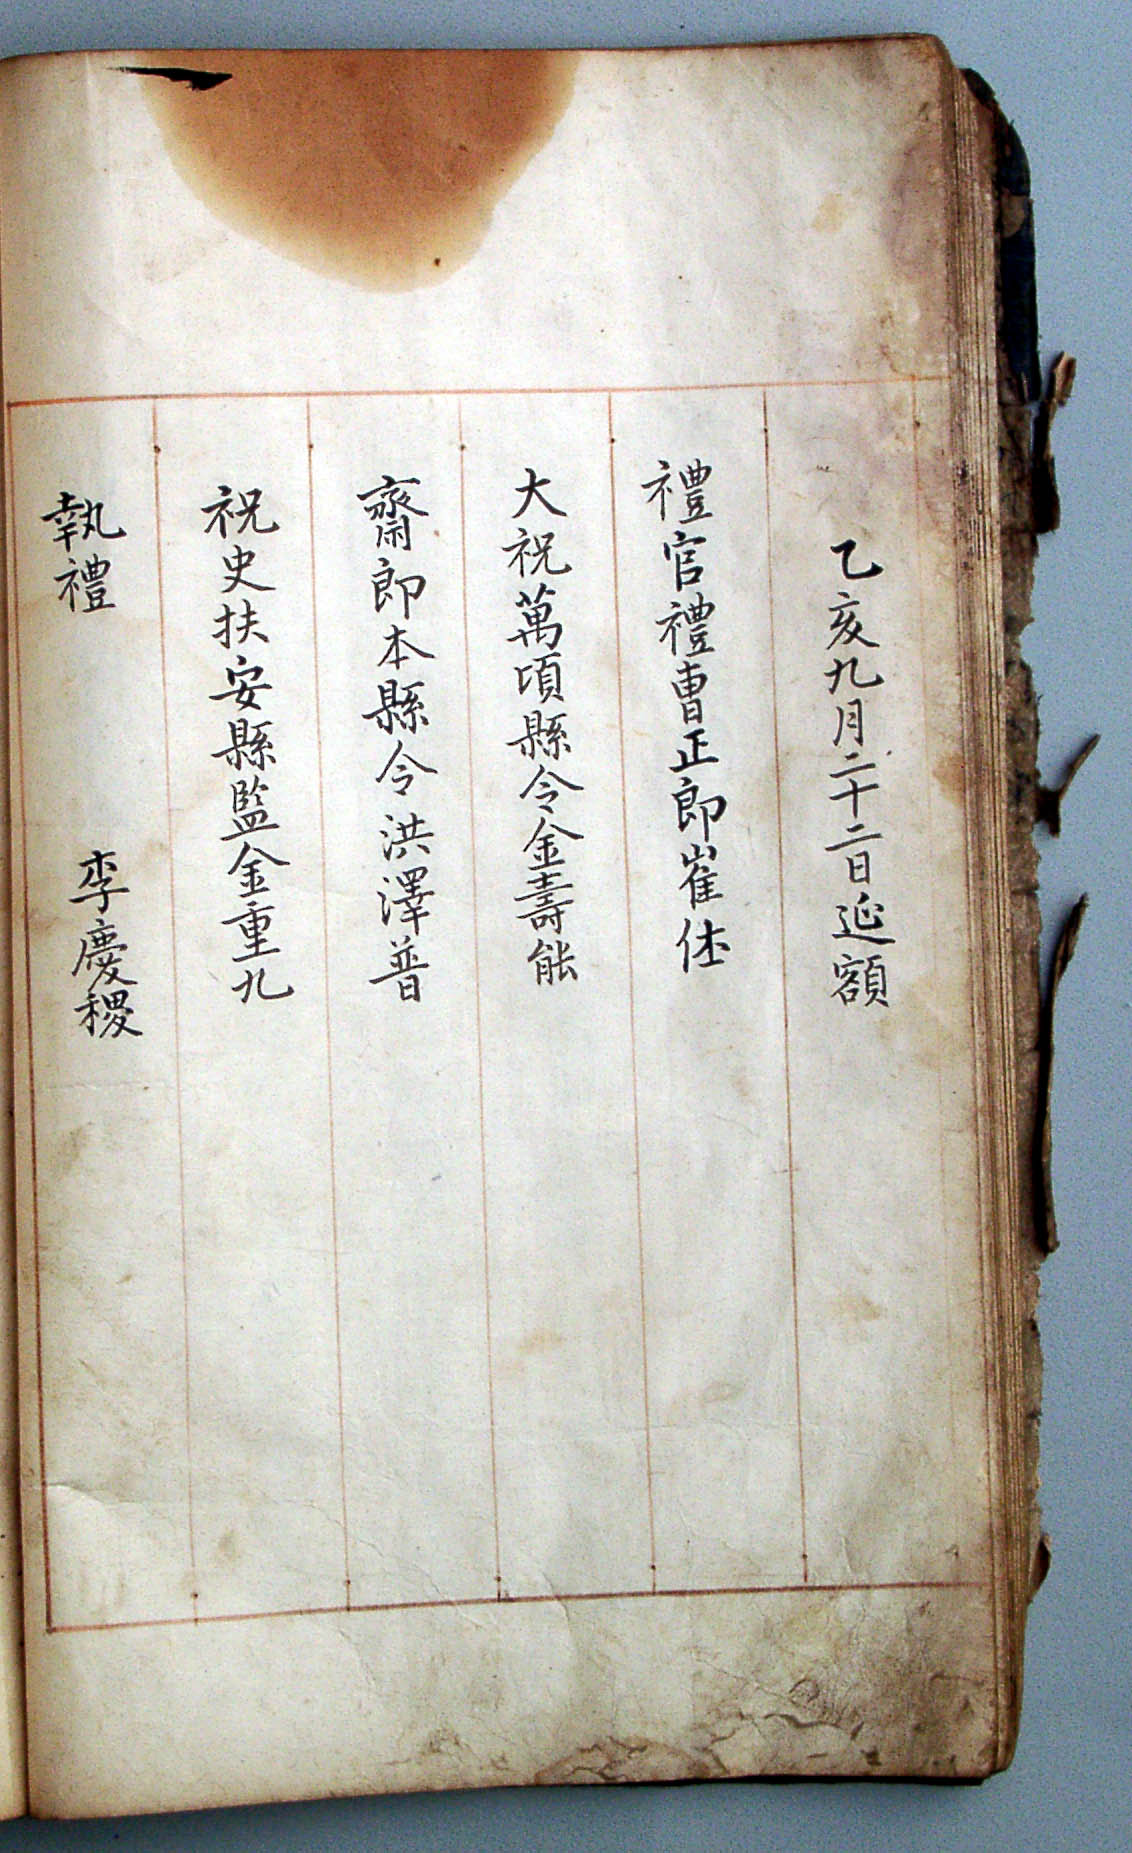 乙亥九月二十二日延額
禮官禮曺正郎崔烋
大祝萬頃縣令金壽能
齋郎本縣令洪澤普
祝史扶安縣監金重九
執禮 李慶稷